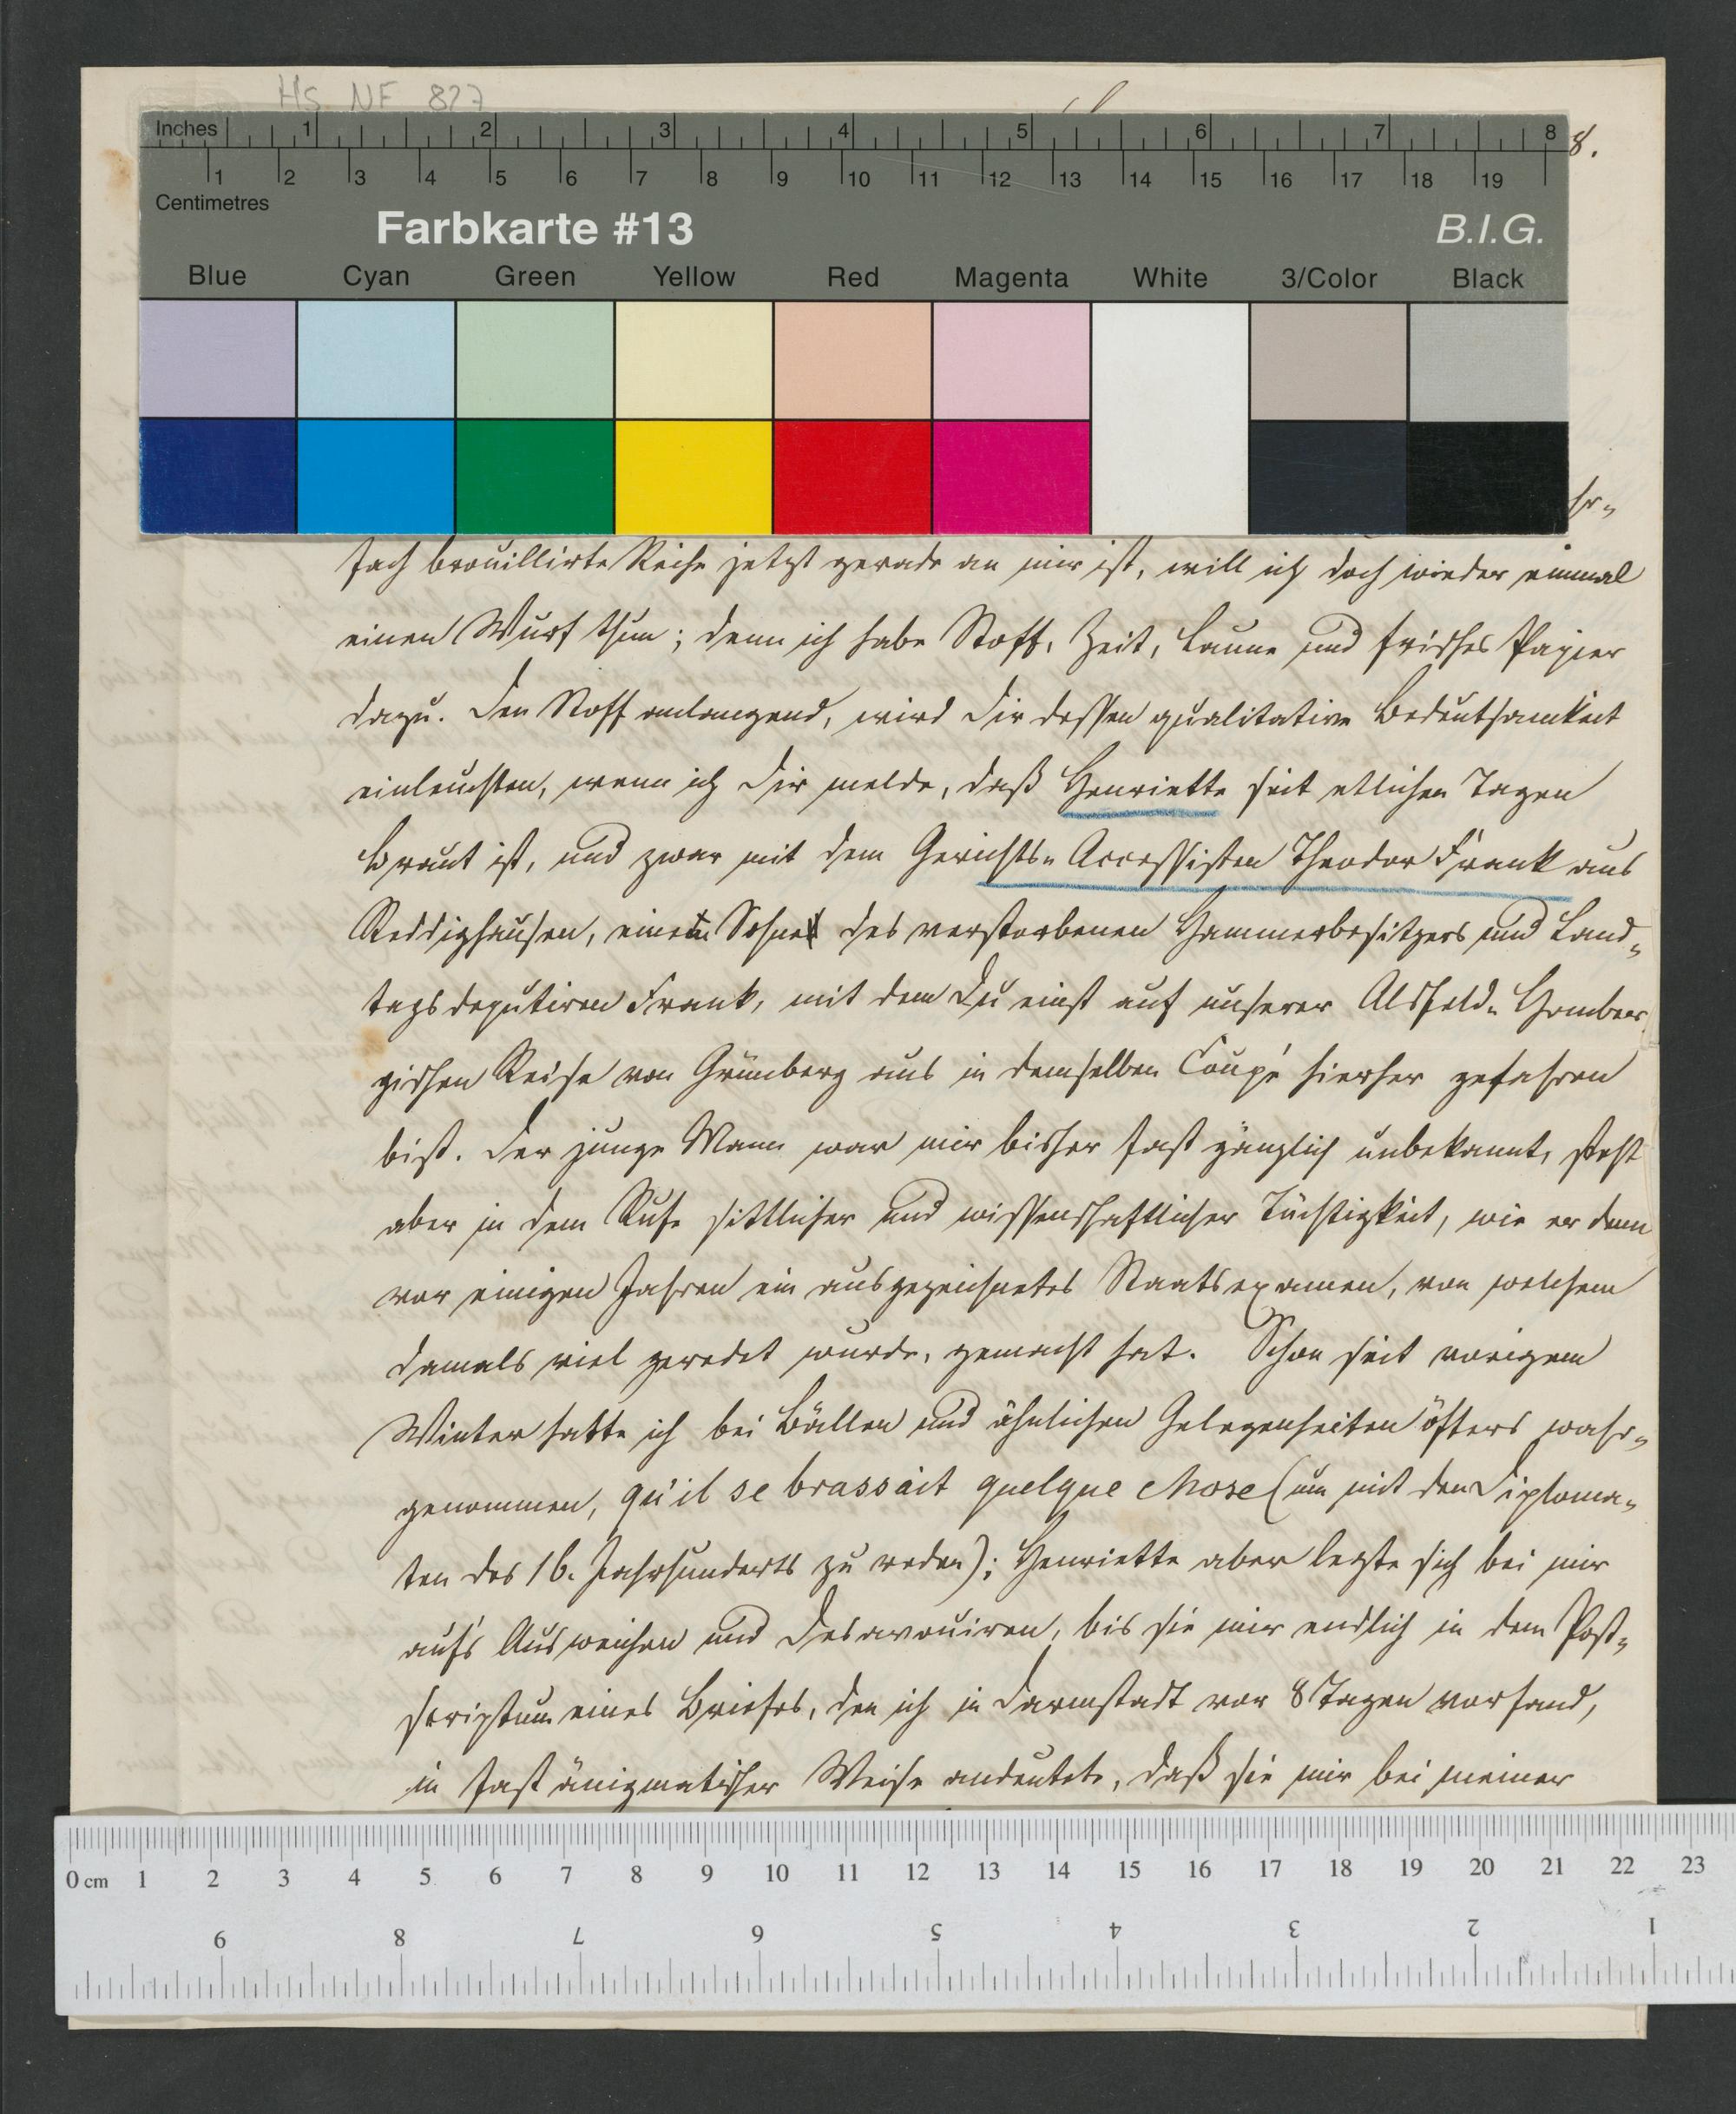 Hs NF 827
8.
Inches 1 2 3 4 5 6 7 8
1 2 3 4 5 6 7 8 9 10 11 12 13 14 15 16 17 18 19
Centimetres
Farbkarte #13 B.I.G.
Blue Cyan Green Yellow Red Magenta White 3/Color Black
hr-
fach brouillirte Reihe jetzt gerade an mir ist, will ich doch wieder einmal
einen Wurf thun; denn ich habe Stoff, Zeit, Laune und frisches Papier
dazu. Den Stoff anlangend, wird Dir dessen qualitative Bedeutsamkeit
einleuchten, wenn ich Dir melde, daß Henriette seit etlichen Tagen
Braut ist, und zwar mit dem Gerichts-Accessisten Theodor Frank aus
Reddighausen, einem Sohne des verstorbenen Hammerbesitzers und Land-
tagsdeputiren Frank, mit dem Du einst auf unserer Alsfeld-Homber
gischen Reise von Grünberg aus in demselben Coupé hierher gefahren
bist. Der junge Mann war mir bisher fast gänzlich unbekannt, steht
aber in dem Rufe sittlicher und wissenschaftlicher Tüchtigkeit, wie er denn
vor einigen Jahren ein ausgezeichnetes Staatsexamen, von welchem
damals viel geredet wurde, gemacht hat. Schon seit vorigem
Winter hatte ich bei Bällen und ähnlichen Gelegenheiten öfters wahr-
genommen, qu'il se brassait quelque chose (um mit den Diploma-
ten des 16. Jahrhunderts zu reden); Henriette aber legte sich bei mir
auf's Ausweichen und Desavouiren, bis sie mir endlich in dem Post-
scriptum eines Briefes, den ich in Darmstadt vor 8 Tagen vorfand,
in fast änigmatischer Weise andeutete, daß sie mir bei meiner
0 cm 1 2 3 4 5 6 7 8 9 10 11 12 13 14 15 16 17 18 19 20 21 22 23
9 8 7 6 5 4 3 2 1